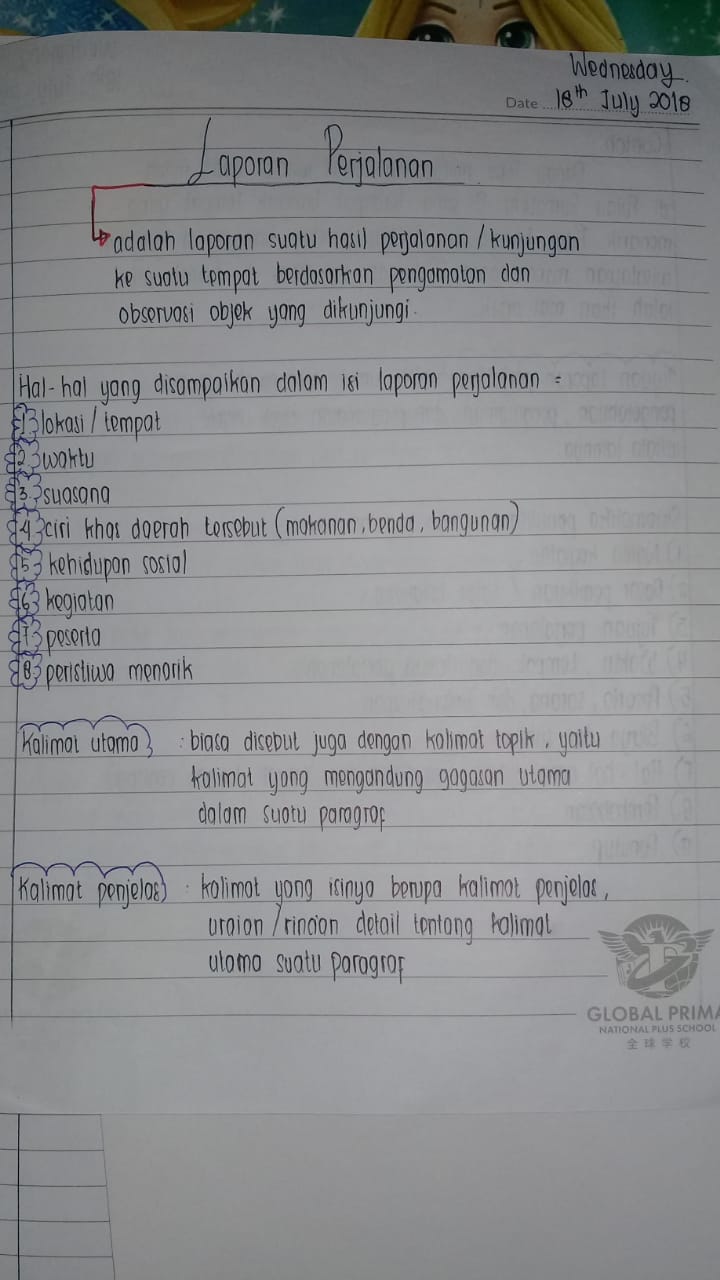 Wednesday.
Date 18th July 2018
Laporan Perjalanan
adalah laporan suatu hasil perjalanan / kunjungan
ke suatu tempat berdasarkan pengamatan dan
observasi objek yang dikunjungi.
Hal-hal yang disampaikan dalam isi laporan perjalanan =
1 lokasi / tempat
2 waktu
3. suasana
4 ciri khas daerah tersebut (makanan, benda, bangunan)
5 kehidupan sosial
6 kegiatan
7 peserta
8 peristiwa menarik
Kalimat utama : biasa disebut juga dengan kalimat topik, yaitu
kalimat yang mengandung gagasan utama
dalam suatu paragraf
Kalimat penjelas : kalimat yang isinya berupa kalimat penjelas,
uraian / rincian detail tentang kalimat
utama suatu paragraf
GLOBAL PRIMA
NATIONAL PLUS SCHOOL
全球学校